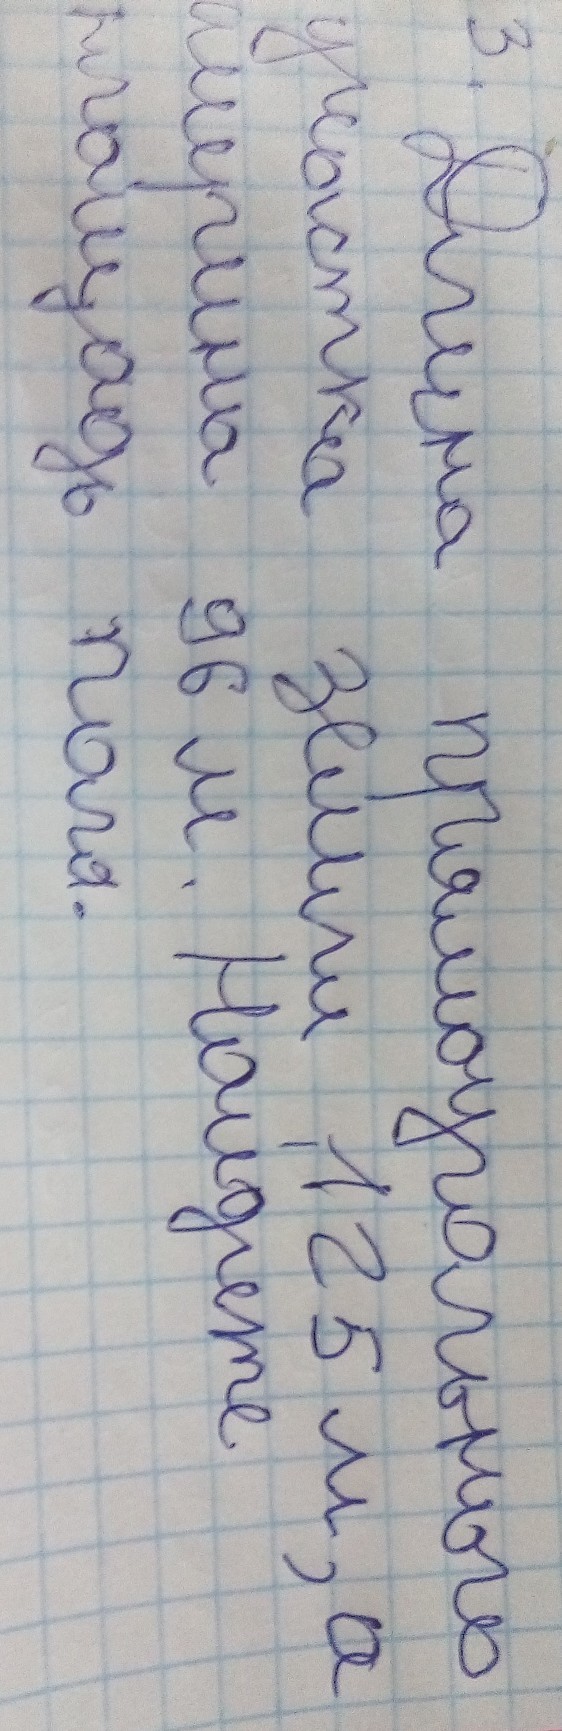 3. Длина прямоугольного
участка земли 125 м, а
ширина 96 м. Найдите
площадь поля.